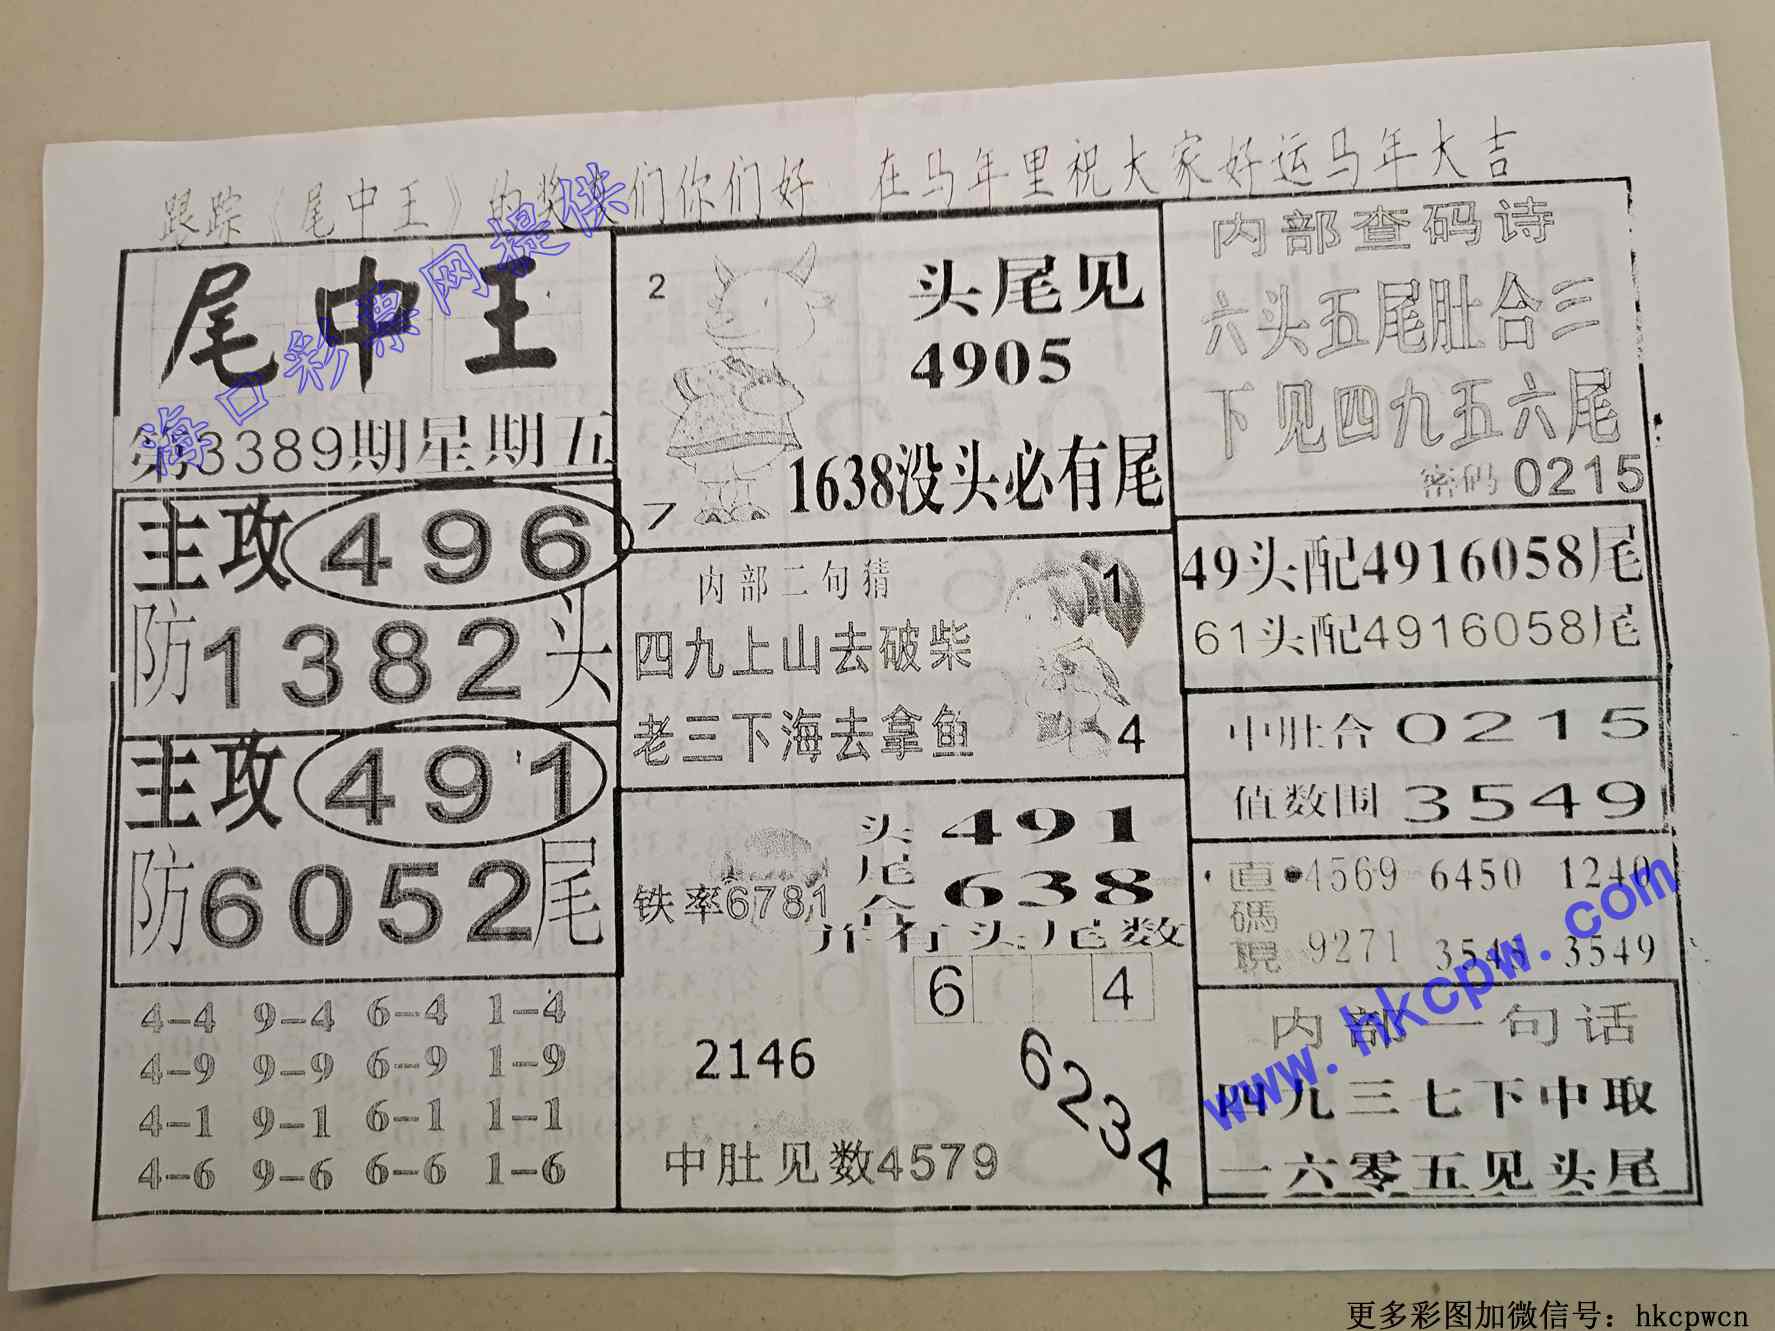 跟踪《尾中王》的奖友们你们好 在马年里祝大家好运马年大吉
尾中王
第3389期星期五
主攻496
防1382头
主攻491
防6052尾
4-4 9-4 6-4 1-4
4-9 9-9 6-9 1-9
4-1 9-1 6-1 1-1
4-6 9-6 6-6 1-6
2
头尾见
4905
1638没头必有尾
7
内部二句猜
1
四九上山去破柴
老三下海去拿鱼
4
头 491
尾
合 638
铁率6781
并有头尾数
6 4
2146
6234
中肚见数4579
内部查码诗
六头五尾肚合三
下见四九五六尾
密码0215
49头配4916058尾
61头配4916058尾
中肚合0215
值数围3549
直碼現
4569 6450 1240
9271 3548 3549
内部一句话
四九三七下中取
一六零五见头尾
海口彩票网提供
www.hkcpw.com
更多彩图加微信号：hkcpwcn